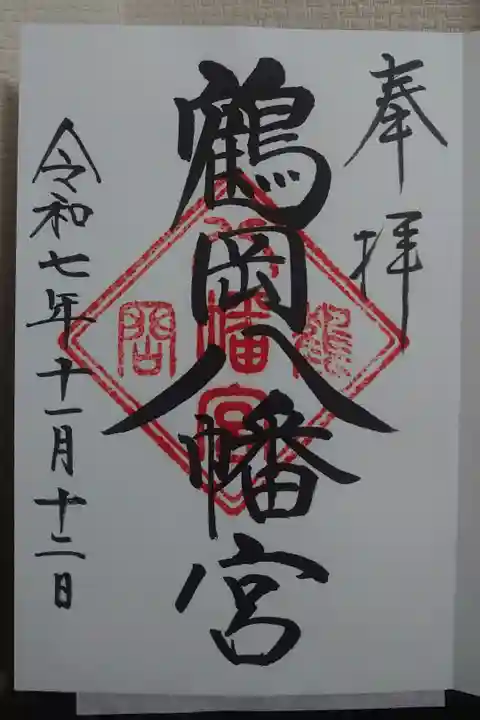 奉拝
鶴岡八幡宮
令和七年十一月十二日